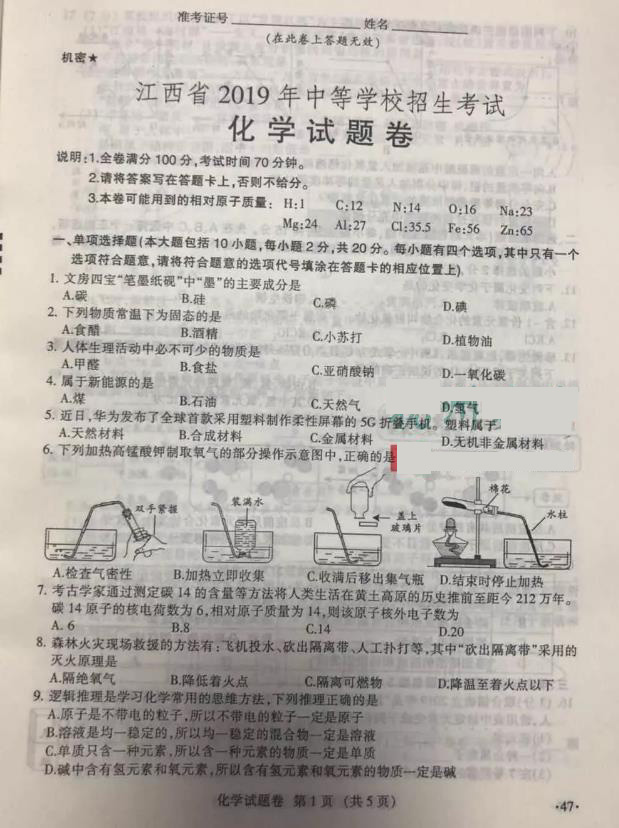 准考证号 姓名
(在此卷上答题无效)
机密★
江西省2019年中等学校招生考试
化学试题卷
说明:1.全卷满分100分,考试时间70分钟。
2.请将答案写在答题卡上,否则不给分。
3.本卷可能用到的相对原子质量: H:1 C:12 N:14 O:16 Na:23
Mg:24 Al:27 Cl:35.5 Fe:56 Zn:65
一、单项选择题(本大题包括10小题,每小题2分,共20分。每小题有四个选项,其中只有一个
选项符合题意,请将符合题意的选项代号填涂在答题卡的相应位置上)
1. 文房四宝“笔墨纸砚”中“墨”的主要成分是
A.碳 B.硅 C.磷 D.碘
2. 下列物质常温下为固态的是
A.食醋 B.酒精 C.小苏打 D.植物油
3. 人体生理活动中必不可少的物质是
A.甲醛 B.食盐 C.亚硝酸钠 D.一氧化碳
4. 属于新能源的是
A.煤 B.石油 C.天然气 D.氢气
5. 近日,华为发布了全球首款采用塑料制作柔性屏幕的5G折叠手机。塑料属于
A.天然材料 B.合成材料 C.金属材料 D.无机非金属材料
6. 下列加热高锰酸钾制取氧气的部分操作示意图中,正确的是
双手紧握 装满水 盖上玻璃片 棉花 水柱
A.检查气密性 B.加热立即收集 C.收满后移出集气瓶 D.结束时停止加热
7. 考古学家通过测定碳14的含量等方法将人类生活在黄土高原的历史推前至距今212万年。
碳14原子的核电荷数为6,相对原子质量为14,则该原子核外电子数为
A. 6 B.8 C.14 D.20
8. 森林火灾现场救援的方法有:飞机投水、砍出隔离带、人工扑打等,其中“砍出隔离带”采用的
灭火原理是
A.隔绝氧气 B.降低着火点 C.隔离可燃物 D.降温至着火点以下
9. 逻辑推理是学习化学常用的思维方法,下列推理正确的是
A.原子是不带电的粒子,所以不带电的粒子一定是原子
B.溶液是均一稳定的,所以均一稳定的混合物一定是溶液
C.单质只含一种元素,所以含一种元素的物质一定是单质
D.碱中含有氢元素和氧元素,所以含有氢元素和氧元素的物质一定是碱
化学试题卷 第1页 (共5页)
·47·